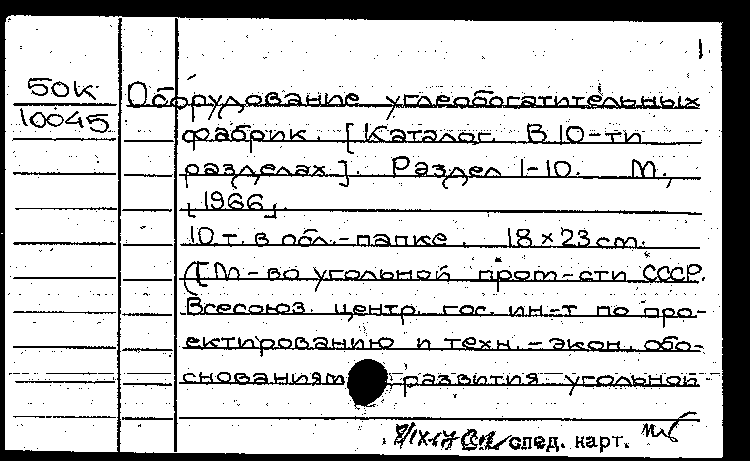 1
50К
10045
Оборудование углеобогатительных
фабрик. [Каталог. В 10-ти
разделах]. Раздел 1-10. М.,
[1966].
10 т. в обл.-папке. 18×23 см.
([М-во угольной пром-сти СССР.
Всесоюз. центр. гос. ин-т по про-
ектированию и техн.-экон. обо-
снованиям развития угольной
след. карт.